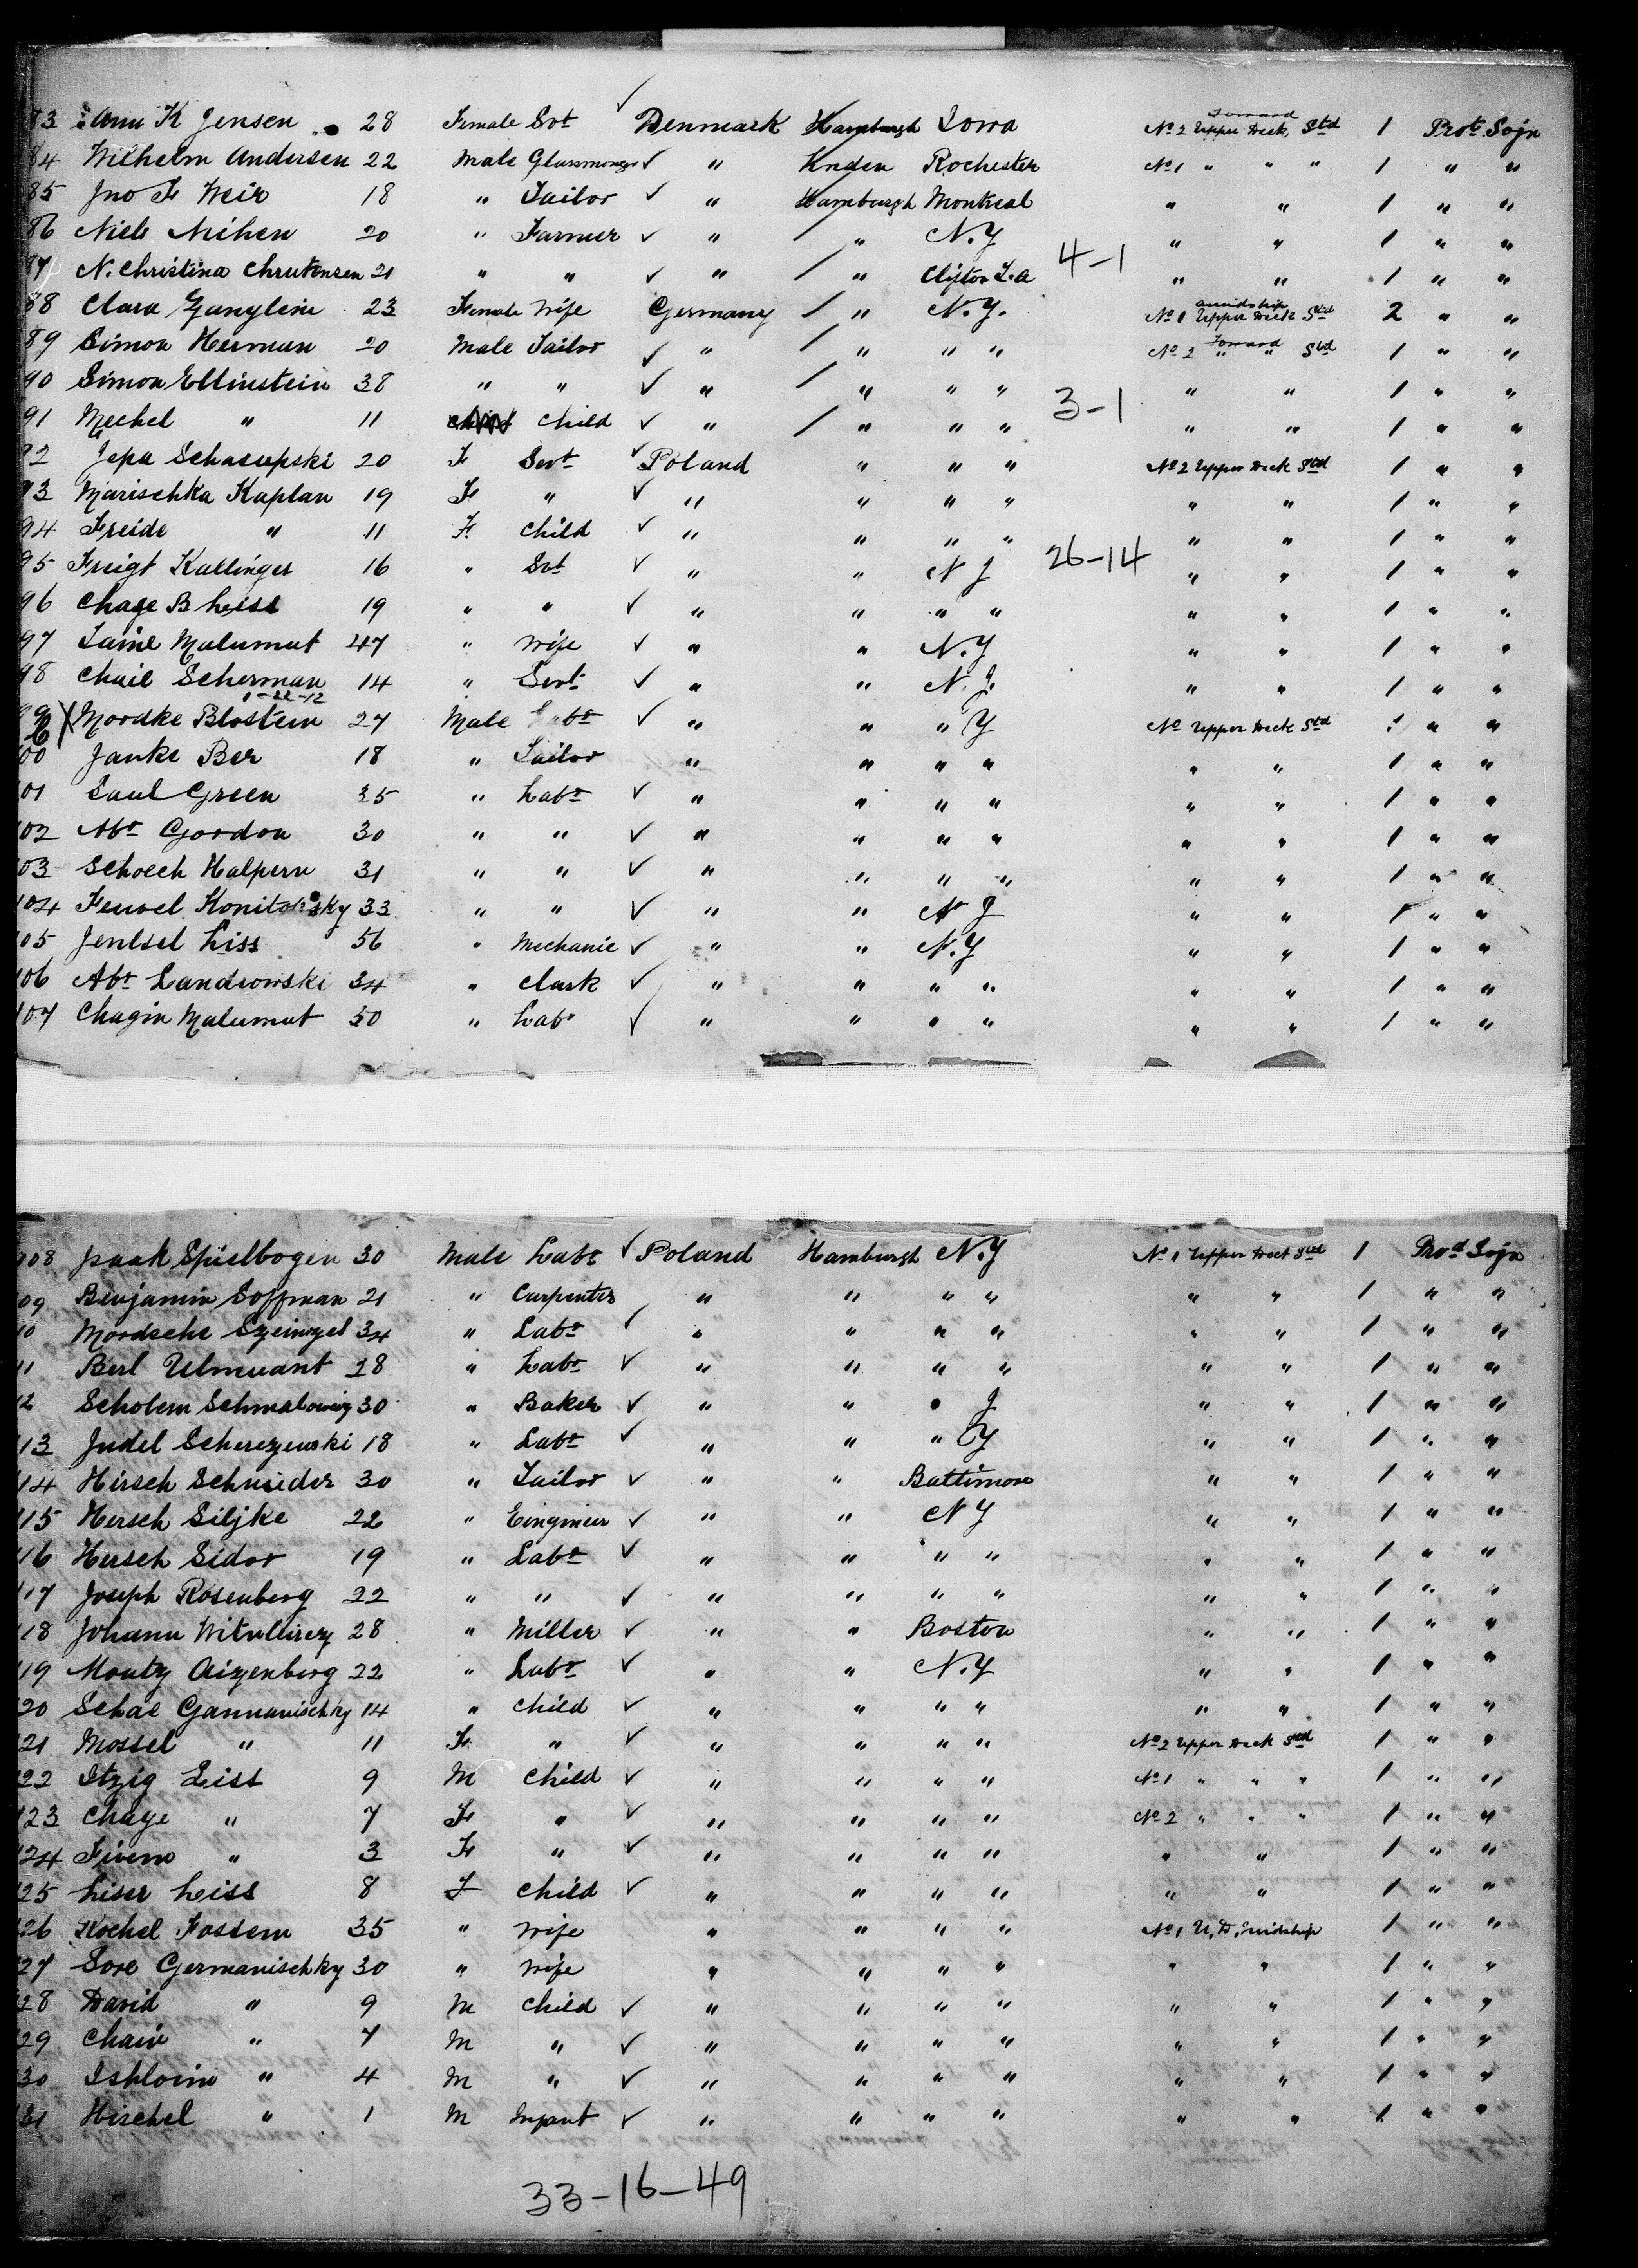 83 Ann K Jensen 28 Female Svt Denmark Hamburgh Iowa No 2 Upper Deck, Forward Std 1 Prot. Sojn
84 Wilhelm Andersen 22 Male Glassmonger " Emden Rochester No 1 " " " 1 " "
85 Jno F Weir 18 " Tailor " Hamburgh Montreal " " 1 " "
86 Niels Nielsen 20 " Farmer " " N.Y " " 1 " "
4-1
87 N. Christina Christensen 21 " " " " Clifton I.a " " 1 " "
88 Clara Ganglein 23 Female Wife Germany " N.Y. No 1 Upper Deck amidship Std 2 " "
89 Simon Herman 20 Male Tailor " " " " No 2 " Forward " Std 1 " "
90 Simon Ellinstein 38 " " " " " " " " 1 " "
3-1
91 Mechel " 11 Child " " " " " " 1 " "
92 Jepa Schasupski 20 F Servt Poland " " " No 2 Upper Deck Std 1 " "
93 Marischka Kaplan 19 F " " " " " " " 1 " "
94 Freide " 11 F Child " " " " " " 1 " "
26-14
95 Freigt Kallinger 16 " Svt " " N Y " " 1 " "
96 Chage B Leiss 19 " " " " " " " " 1 " "
97 Taine Malumut 47 " Wife " " N.Y " " 1 " "
98 Chaie Scherman 14 " Servt " " N.Y. " " 1 " "
1-22-12
99 Mordke Blostein 27 Male Labr " " " Y No Upper Deck Std 1 " "
100 Janke Ber 18 " Tailor " " " " " " 1 " "
101 Saul Green 35 " Labr " " " " " " 1 " "
102 Abr Gordon 30 " " " " " " " " 1 " "
103 Schoech Halpern 31 " " " " " " " " 1 " "
104 Feuvel Konitowsky 33 " " " " N Y " " 1 " "
105 Jentsel Liss 56 " Mechanic " " N.Y " " 1 " "
106 Abr Landrowski 34 " Clark " " " " " " 1 " "
107 Chagin Malumut 50 " Labr " " " " " " 1 " "
108 Isaak Spielbogen 30 Male Labr Poland Hamburgh N.Y No 1 Upper Deck Std 1 Prot Sojn
109 Benjamin Soffman 21 " Carpenter " " " " " " 1 " "
10 Mordsche Szeinzel 34 " Labr " " " " " " 1 " "
11 Berl Ulmuant 28 " Labr " " " " " " 1 " "
12 Scholem Schmalowiez 30 " Baker " " " Y " " 1 " "
113 Judel Scherezewski 18 " Labr " " " Y " " 1 " "
114 Hirsch Schneider 30 " Tailor " " Baltimore " " 1 " "
115 Hersch Siljke 22 " Eingineer " " N Y " " 1 " "
116 Hersch Sidor 19 " Labr " " " " " " 1 " "
117 Joseph Rosenberg 22 " " " " " " " " 1 " "
118 Johann Witullirez 28 " Miller " " Boston " " 1 " "
119 Moutz Aizenberg 22 " Labr " " N.Y " " 1 " "
120 Schae Gannanischky 14 " Child " " " " " " 1 " "
121 Mossel " 11 F " " " " " No 2 Upper Deck Std 1 " "
122 Itzig Liss 9 M Child " " " " No 1 " " " 1 " "
123 Chaye " 7 F " " " " " No 2 " " " 1 " "
124 Fivem " 3 F " " " " " " " 1 " "
125 Liser Leiss 8 F Child " " " " " " 1 " "
126 Rochel Fassem 35 " Wife " " " " No 1 U. D. Midship 1 " "
127 Sore Germanischky 30 " Wife " " " " " " 1 " "
128 David " 9 M Child " " " " " " 1 " "
129 Chaiv " 7 M " " " " " " " 1 " "
130 Ishloim " 4 M " " " " " " " 1 " "
131 Hirchel " 1 M Infant " " " " " " 1 " "
33-16-49